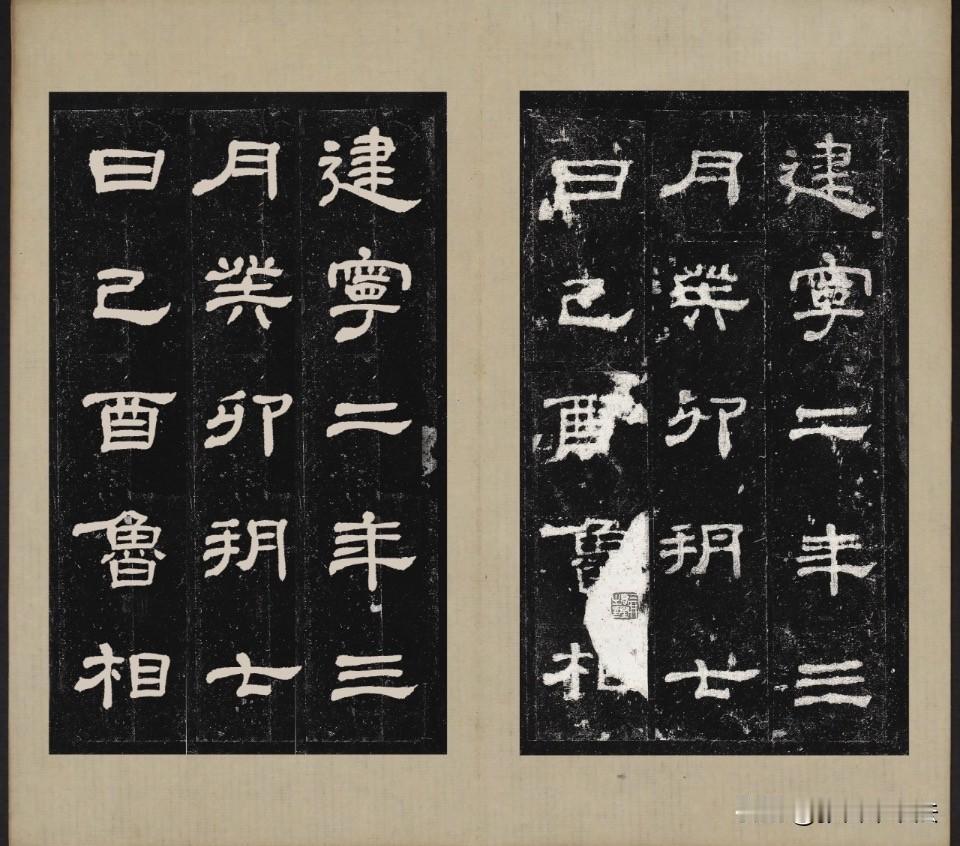 建寧二年三
月癸卯朔七
日己酉魯相
建寧二年三
月癸卯朔七
日己酉魯相